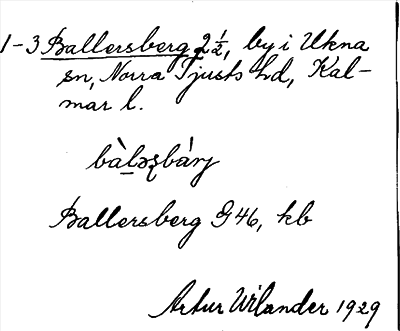 1-3 Ballersberg 2 ½, by i Ukna
sn, Norra Tjusts hd, Kal-
mar l.
bàləʂbárj
Ballersberg G46, kb
Artur Wilander 1929